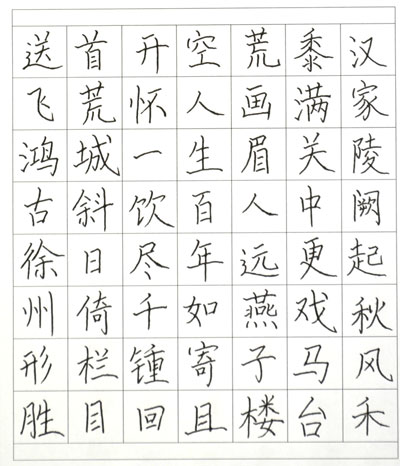 汉家陵阙起秋风禾
黍满关中更戏马台
荒画眉人远燕子楼
空人生百年如寄且
开怀一饮尽千锺回
首荒城斜日倚栏目
送飞鸿古徐州形胜